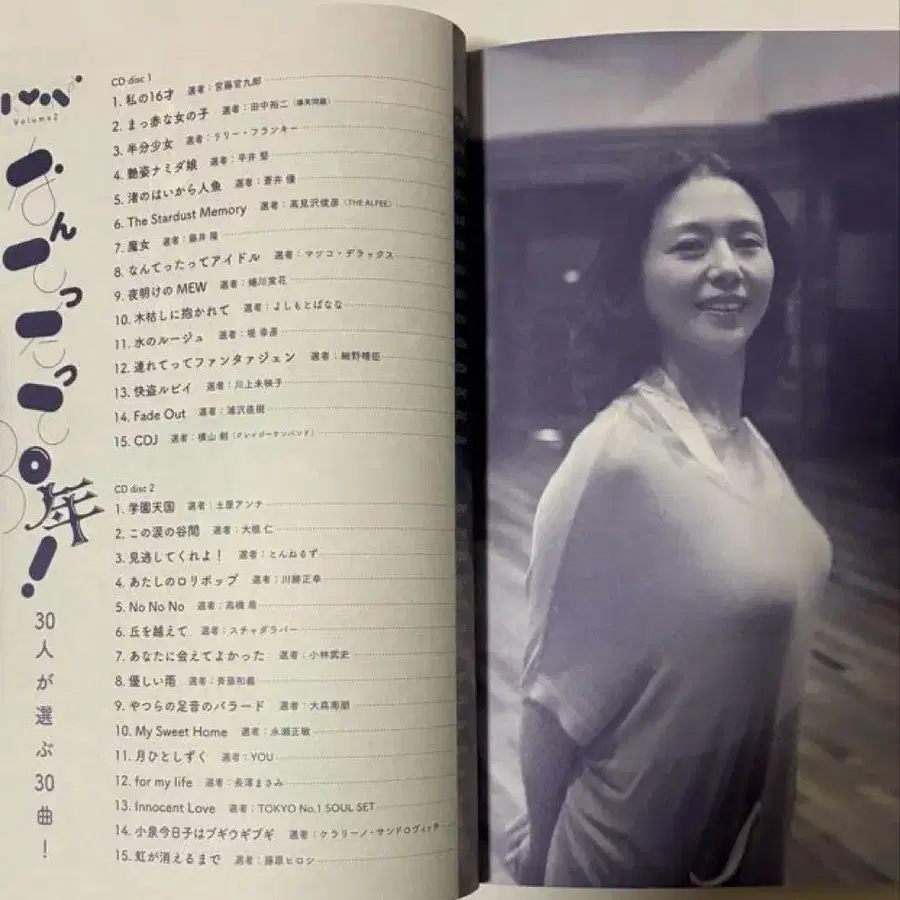 Volume2
なんてったって30年!
30人が選ぶ30曲!
CD disc 1
1. 私の16才 選者:宮藤官九郎
2. まっ赤な女の子 選者:田中裕二(爆笑問題)
3. 半分少女 選者:リリー・フランキー
4. 艶姿ナミダ娘 選者:平井 堅
5. 渚のはいから人魚 選者:蒼井 優
6. The Stardust Memory 選者:高見沢俊彦(THE ALFEE)
7. 魔女 選者:藤井 隆
8. なんてったってアイドル 選者:マツコ・デラックス
9. 夜明けのMEW 選者:蜷川実花
10. 木枯しに抱かれて 選者:よしもとばなな
11. 水のルージュ 選者:堤 幸彦
12. 連れてってファンタァジェン 選者:細野晴臣
13. 快盗ルビイ 選者:川上未映子
14. Fade Out 選者:浦沢直樹
15. CDJ 選者:横山 剣(クレイジーケンバンド)
CD disc 2
1. 学園天国 選者:土屋アンナ
2. この涙の谷間 選者:大根 仁
3. 見逃してくれよ! 選者:とんねるず
4. あたしのロリポップ 選者:川勝正幸
5. No No No 選者:高橋 盾
6. 丘を越えて 選者:スチャダラパー
7. あなたに会えてよかった 選者:小林武史
8. 優しい雨 選者:斉藤和義
9. やつらの足音のバラード 選者:大森南朋
10. My Sweet Home 選者:永瀬正敏
11. 月ひとしずく 選者:YOU
12. for my life 選者:長澤まさみ
13. Innocent Love 選者:TOKYO No.1 SOUL SET
14. 小泉今日子はブギウギブギ 選者:クラリーノ・サンドロヴィッチ
15. 虹が消えるまで 選者:藤原ヒロシ